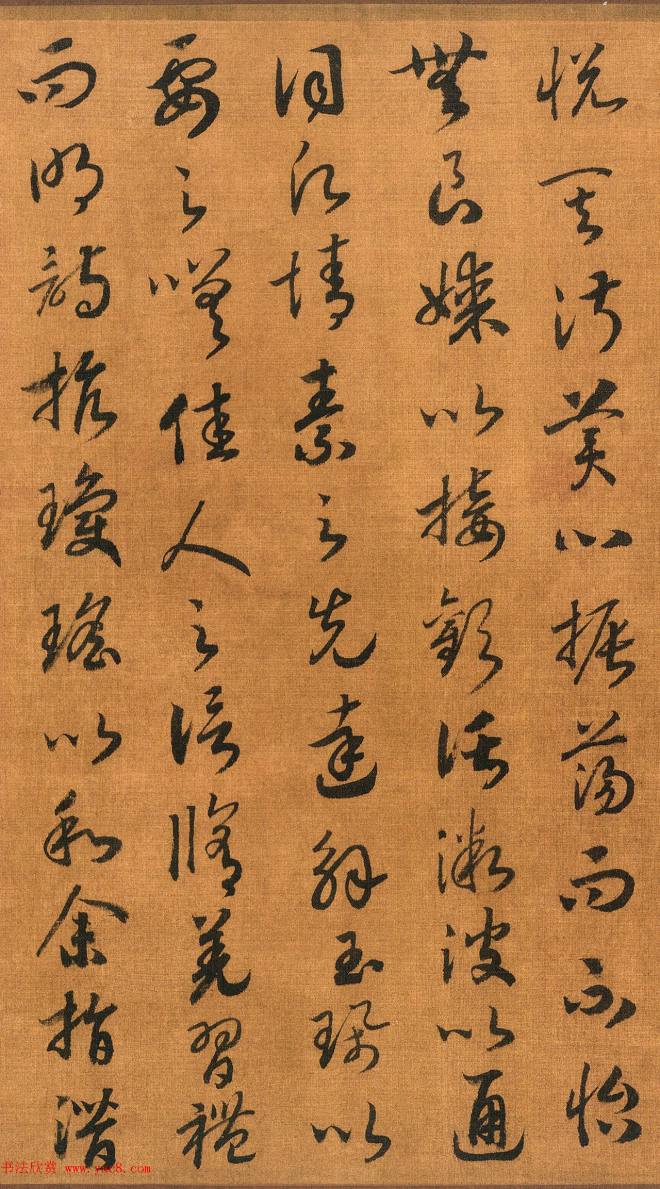 悦其淑美心振蕩而不怡
無良媒以接歡託微波以通
詞情素之先達解玉珮以
要之嗟佳人之信脩羌習禮
而明詩抗瓊瑤以和余指潛
书法欣赏 www.yac8.com